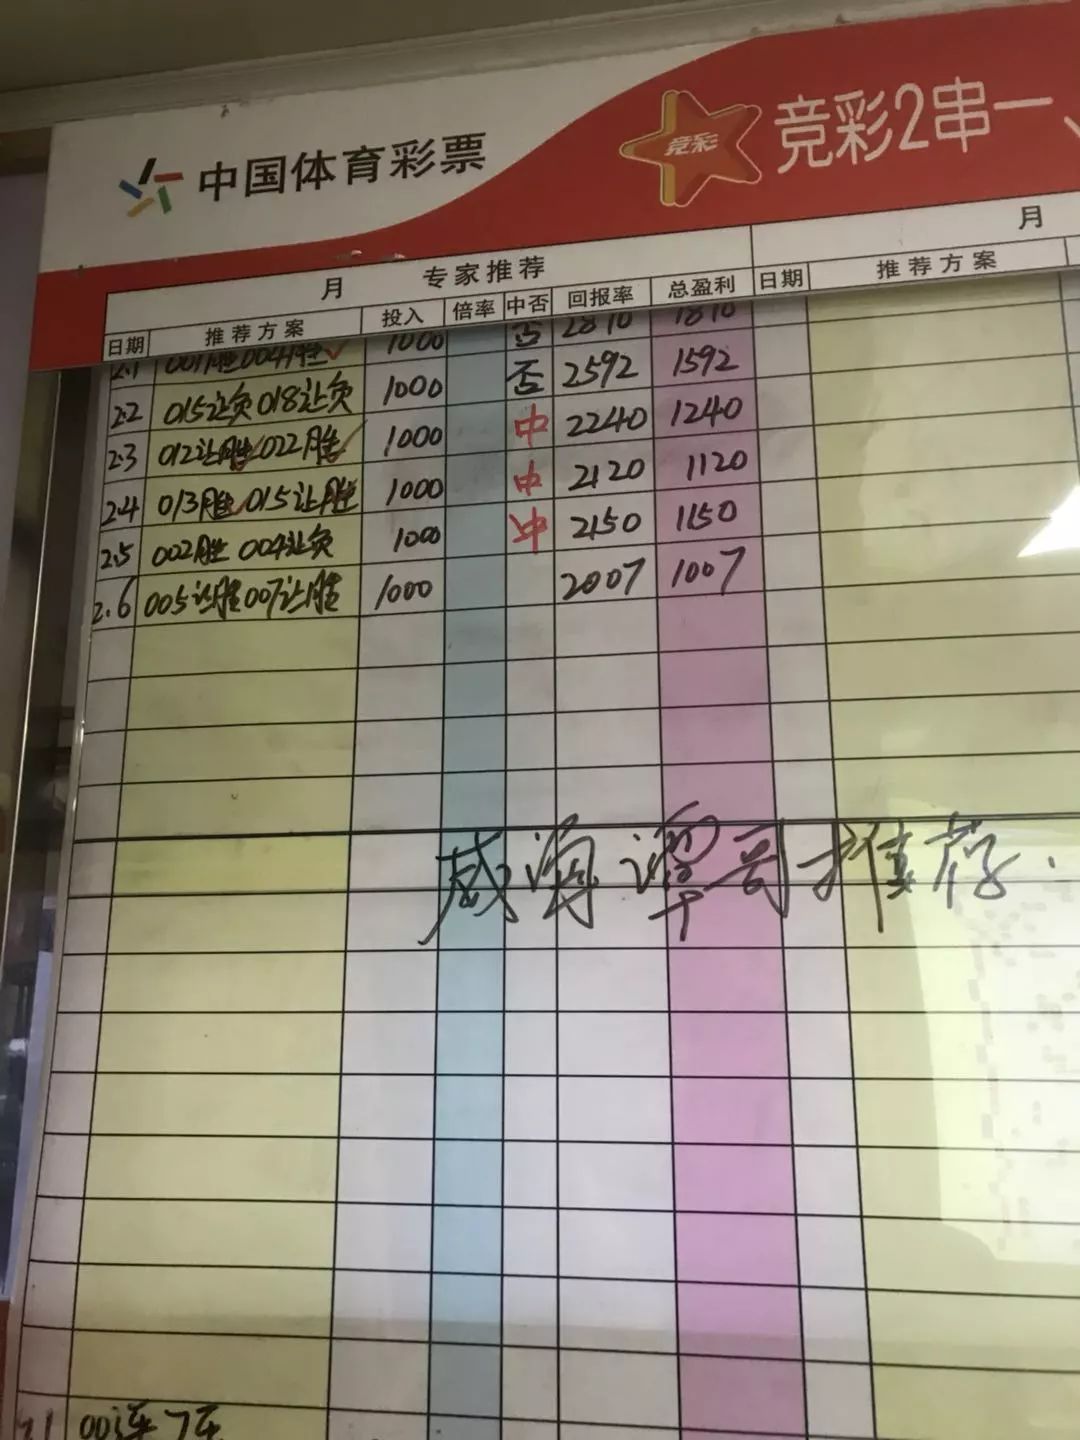 中国体育彩票 竞彩 竞彩2串一
月 专家推荐 月
日期 推荐方案 投入 倍率 中否 回报率 总盈利 日期 推荐方案
2.1 001胜004胜 1000 否 2810 1810
2.2 015让负018让负 1000 否 2592 1592
2.3 012让胜022胜 1000 中 2240 1240
2.4 013胜015让胜 1000 中 2120 1120
2.5 002胜 004让负 1000 中 2150 1150
2.6 005让胜007让胜 1000 2007 1007
威海谭哥推荐.